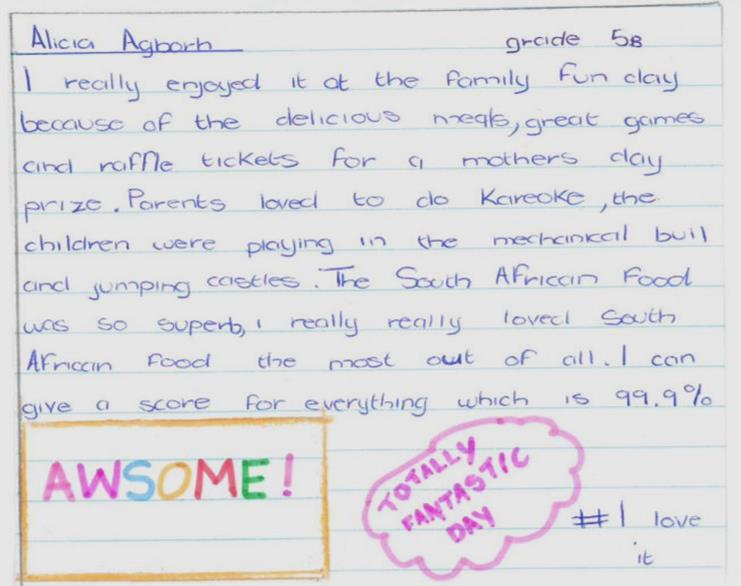 Alicia Agborh grade 5B
I really enjoyed it at the family fun day
because of the delicious meals, great games
and raffle tickets for a mothers day
prize. Parents loved to do Kareoke, the
children were playing in the mechanical bull
and jumping castles. The South African Food
was so superb, i really really loved South
African Food the most out of all. I can
give a score for everything which is 99.9%
AWSOME!
TOTALLY
FANTASTIC
DAY
#I love
it